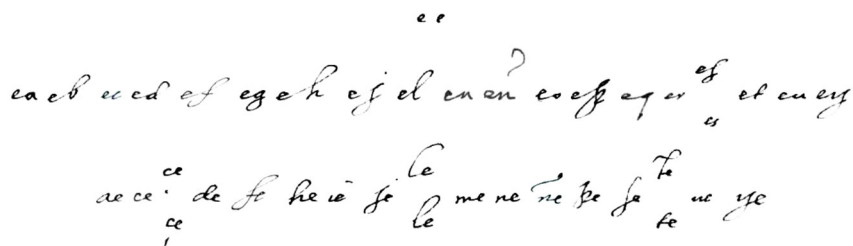 e e
ea eb ec cd ef eg eh ej el em en eo ep eq er es es et eu ey
ae ce ce çe de fe he ie je le le me ne ñe pe se te te ue ye